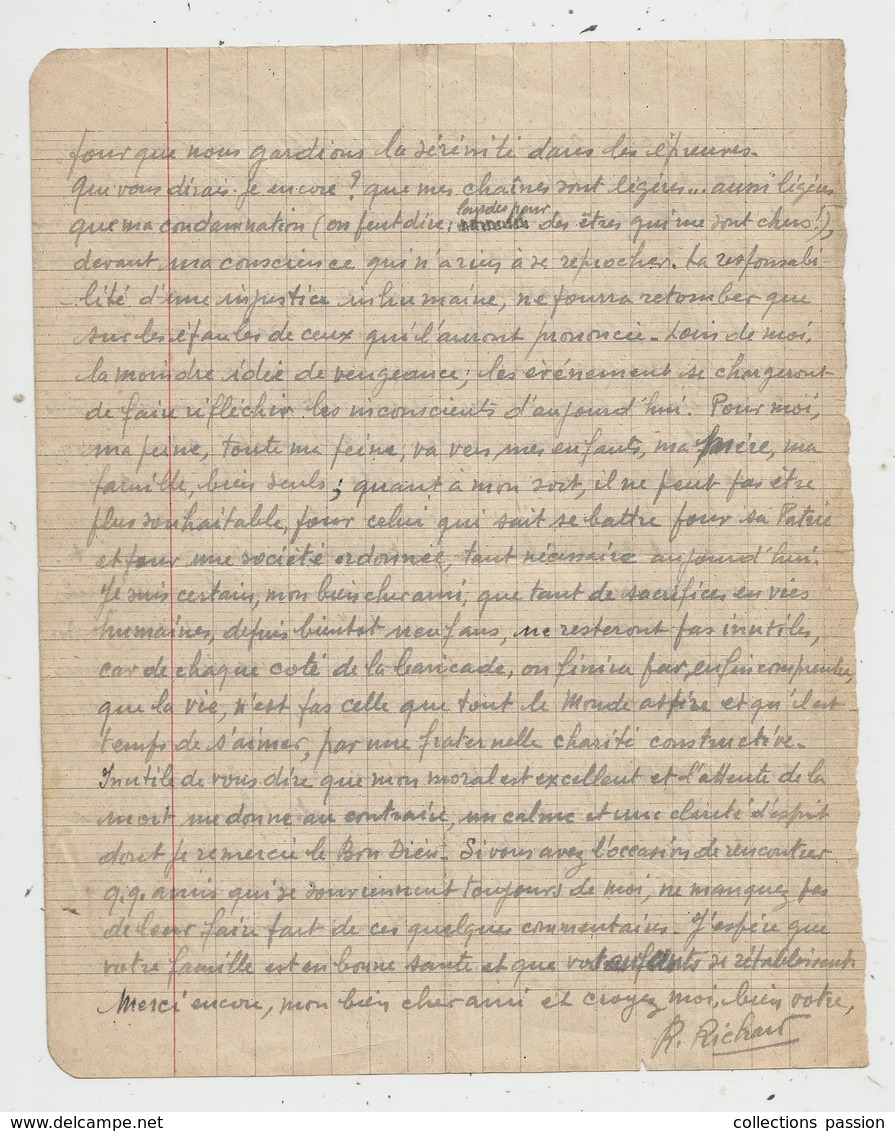 pour que nous gardions la sérénité dans les épreuves.
Que vous dirais-je encore ? que mes chaînes sont légères... aussi légères
que ma condamnation (on peut dire, lourdes pour des êtres qui me sont chers!),
devant ma conscience qui n'a rien à se reprocher. La responsabi-
lité d'une injustice inhumaine, ne pourra retomber que
sur les épaules de ceux qui l'auront prononcée. Loin de moi,
la moindre idée de vengeance; les événement se chargeront
de faire réfléchir les inconscients d'aujourd'hui. Pour moi,
ma peine, toute ma peine, va vers mes enfants, ma mère, ma
famille, bien seuls; quant à mon sort, il ne peut pas être
plus souhaitable, pour celui qui sait se battre pour sa Patrie
et pour une société ordonnée, tant nécessaire aujourd'hui.
Je suis certain, mon bien cher ami, que tant de sacrifices en vies
humaines, depuis bientot neuf ans, ne resteront pas inutiles,
car de chaque coté de la baricade, on finira par, enfin comprendre,
que la vie, n'est pas celle que tout le Monde aspire et qu'il est
temps de s'aimer, par une fraternelle charité constructive.
Inutile de vous dire que mon moral est excellent et l'attente de la
mort me donne au contraire, un calme et une clarté d'esprit
dont je remercie le Bon Dieu. Si vous avez l'occasion de rencontrer
q.q. amis qui se souviennent toujours de moi, ne manquez pas
de leur faire part de ces quelques commentaires. J'espère que
votre famille est en bonne santé et que vos enfants se rétablissent.
Merci encore, mon bien cher ami et croyez moi, bien votre,
R. Richard
collections passion